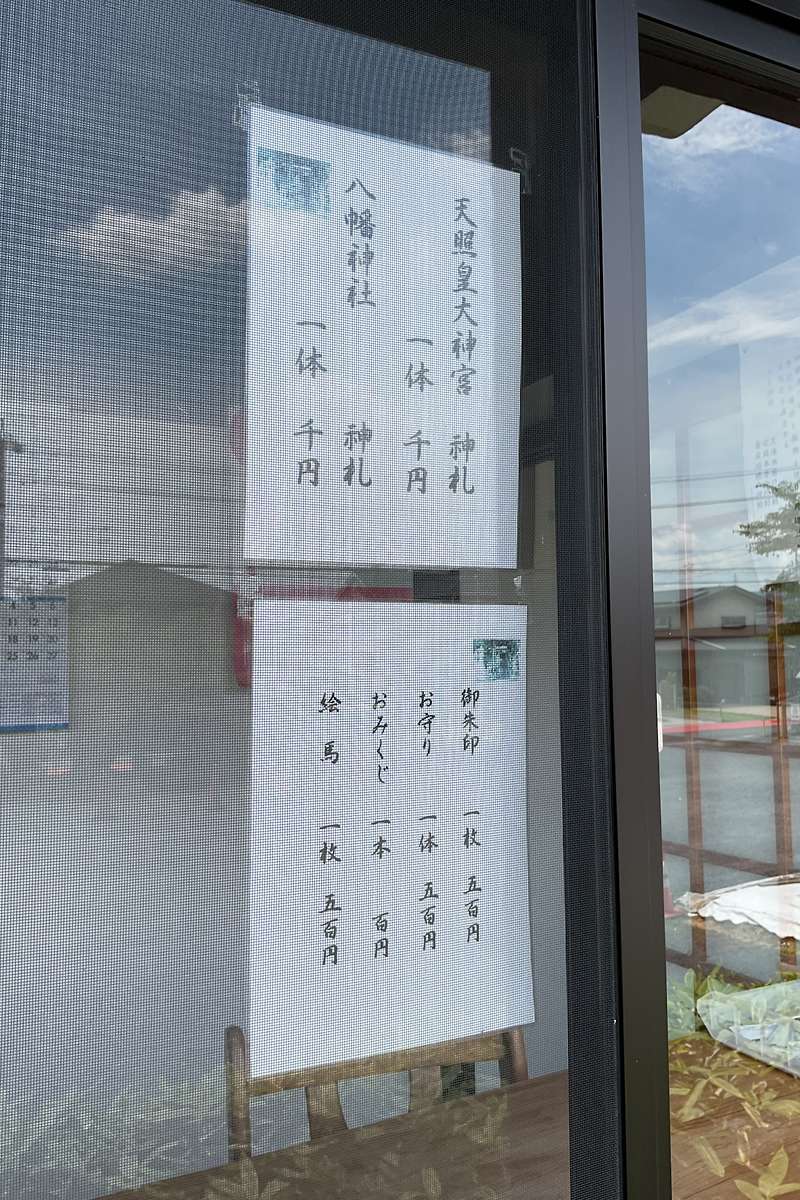 天照皇大神宮 神札
一体 千円
八幡神社 神札
一体 千円
御朱印 一枚 五百円
お守り 一体 五百円
おみくじ 一本 百円
絵馬 一枚 五百円
4 5 6
11 12 13
18 19 20
25 26 27